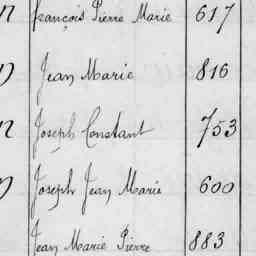 n François Pierre Marie 617
Jean Marie 816
n Joseph Constant 753
Joseph Jean Marie 600
Jean Marie Pierre 883